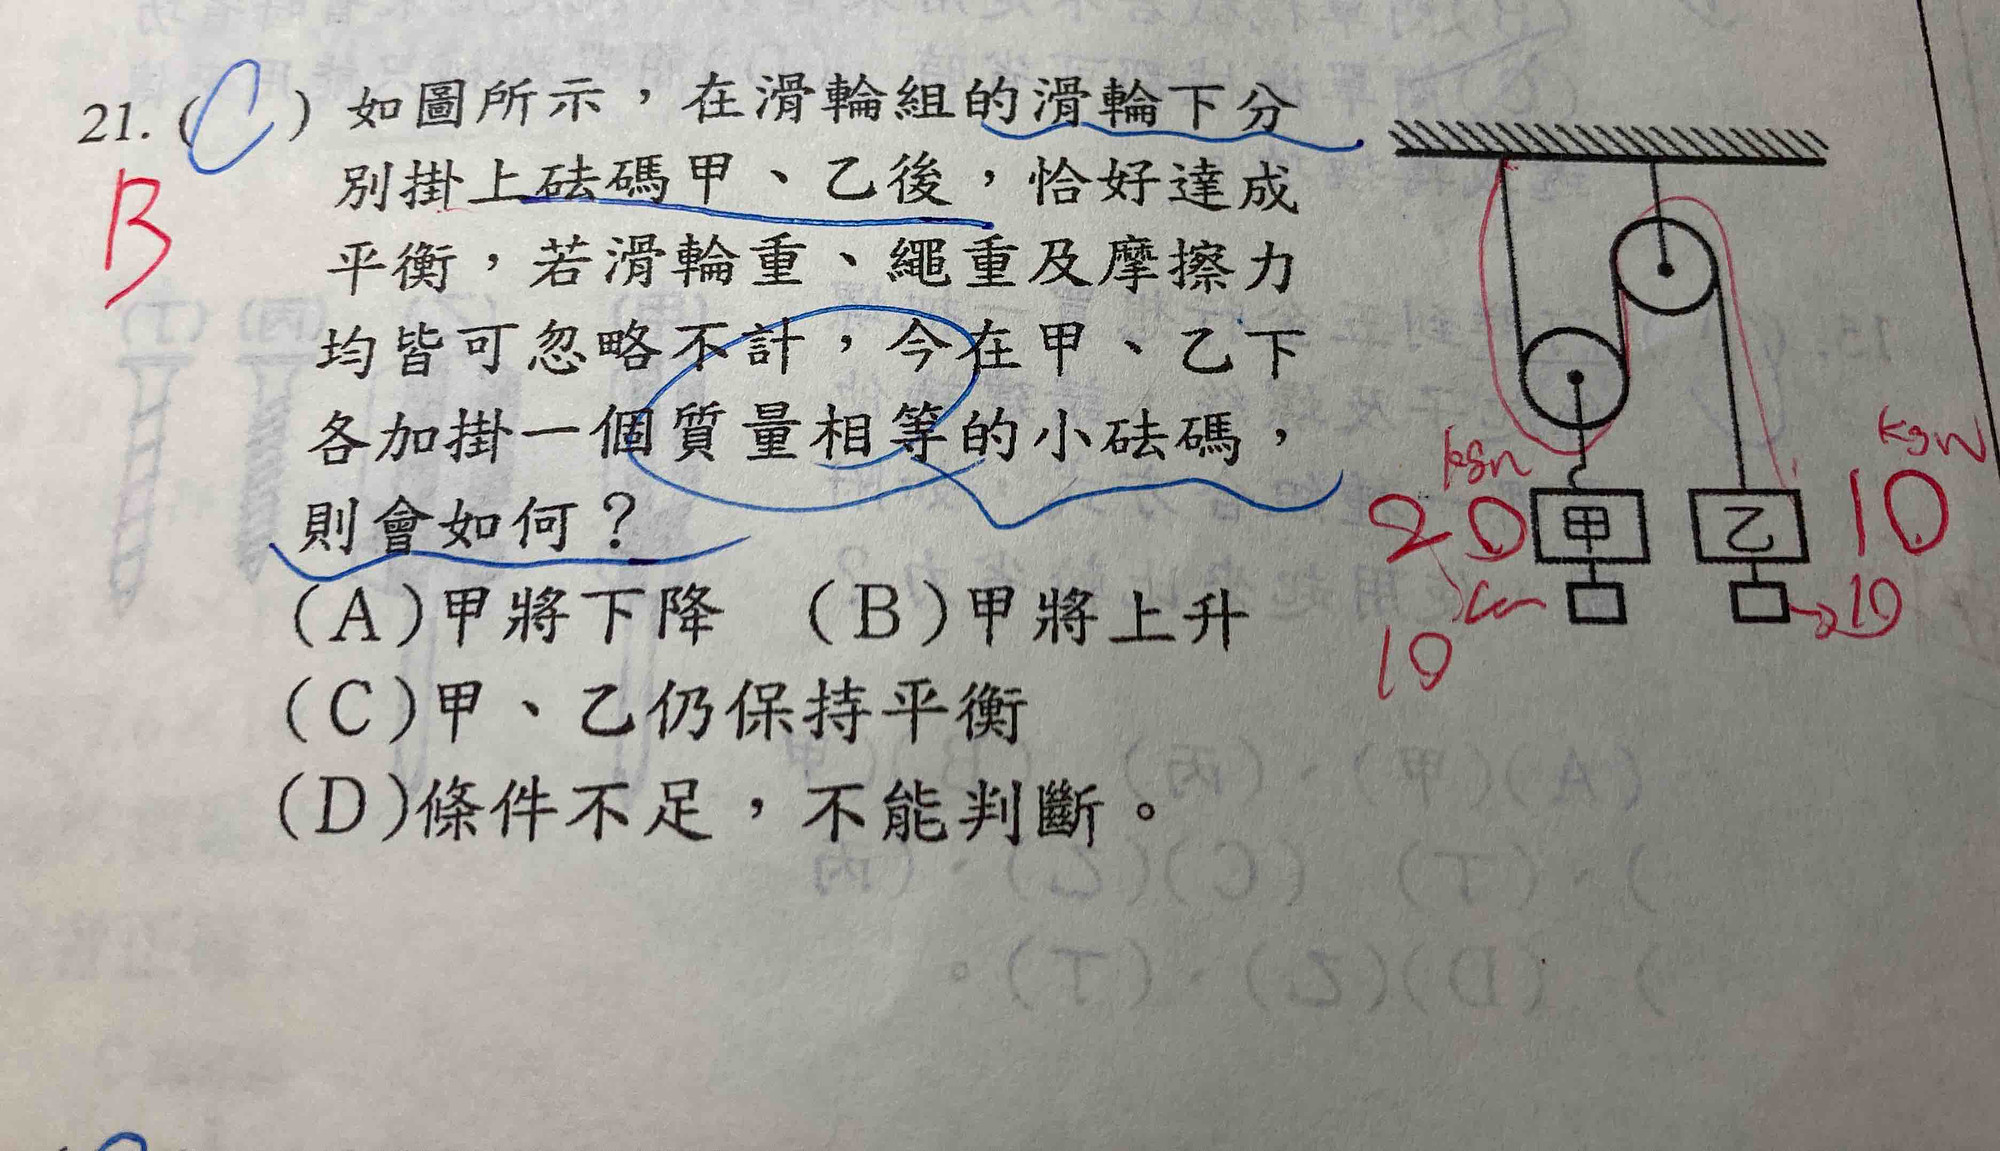 21. ( C ) 如圖所示，在滑輪組的滑輪下分
B
別掛上砝碼甲、乙後，恰好達成
平衡，若滑輪重、繩重及摩擦力
均皆可忽略不計，今在甲、乙下
各加掛一個質量相等的小砝碼，
則會如何？
(A)甲將下降 (B)甲將上升
(C)甲、乙仍保持平衡
(D)條件不足，不能判斷。
kgw
kgw
20 甲 乙 10
10
10